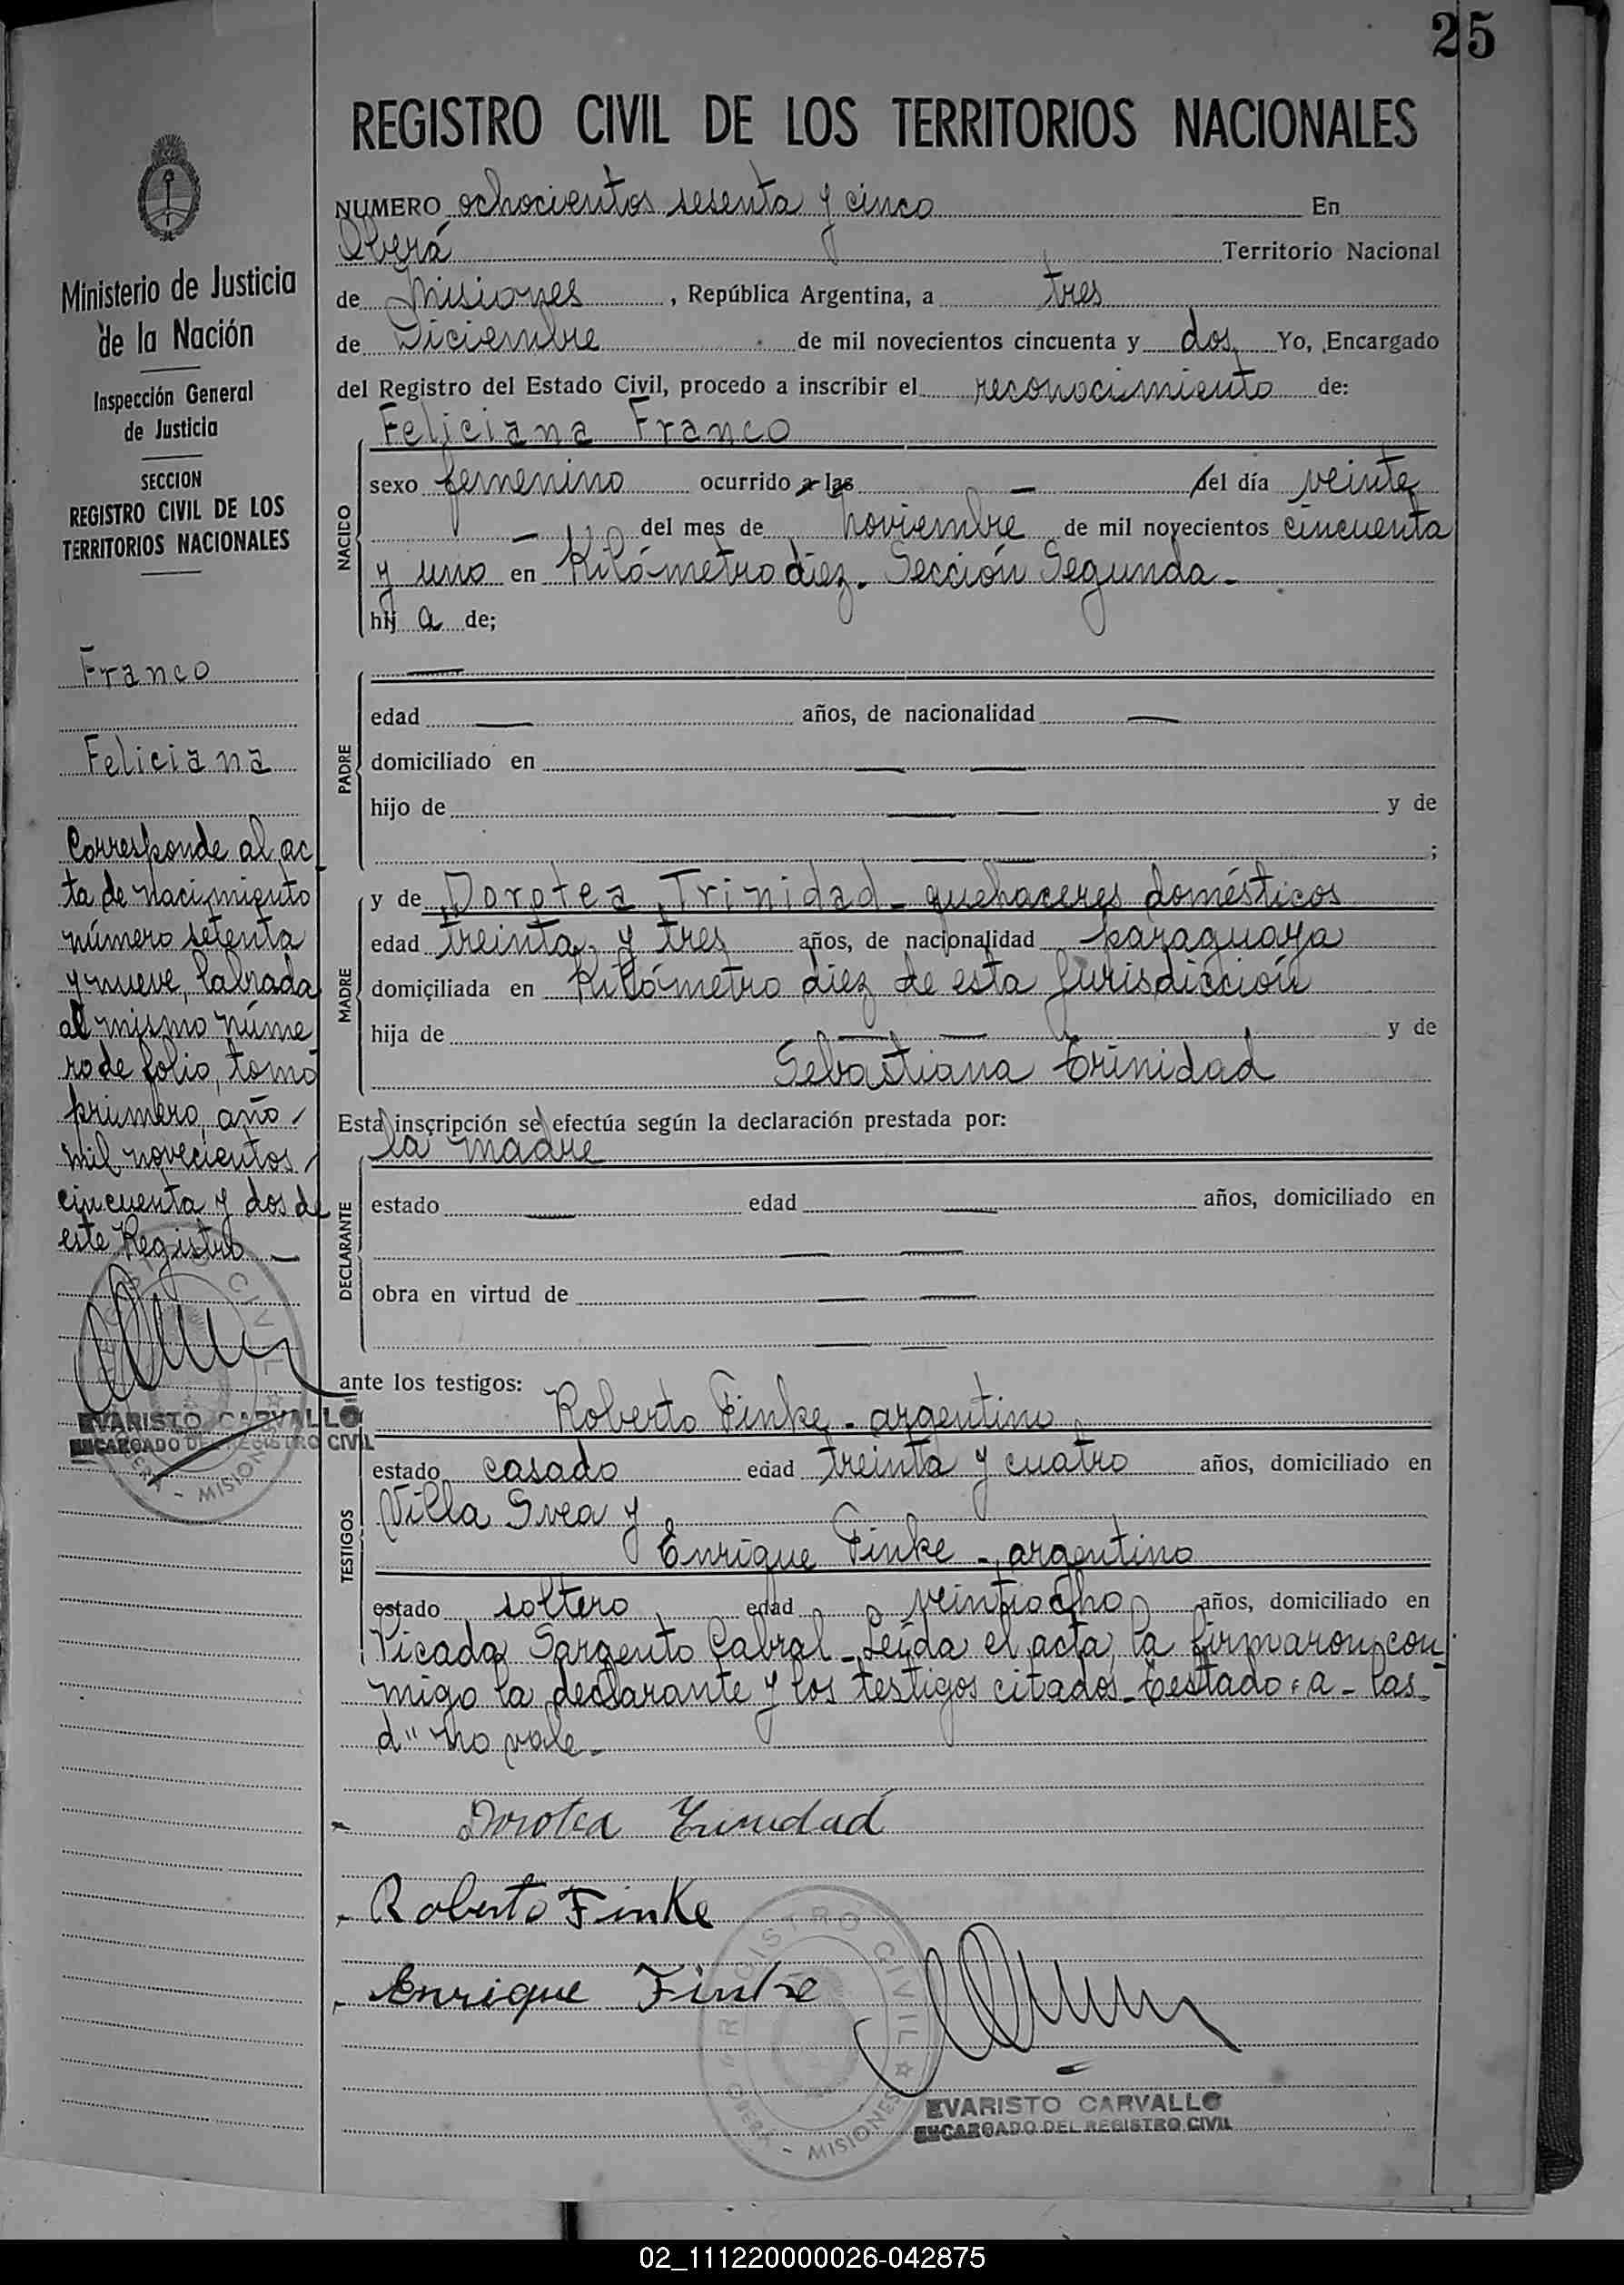 25
REGISTRO CIVIL DE LOS TERRITORIOS NACIONALES
NUMERO ochocientos sesenta y cinco En
Oberá Territorio Nacional
de Misiones, República Argentina, a tres
de Diciembre de mil novecientos cincuenta y dos Yo, Encargado
del Registro del Estado Civil, procedo a inscribir el reconocimiento de:
Feliciana Franco
NACIDO
sexo femenino ocurrido a las — del día veinte
— del mes de noviembre de mil novecientos cincuenta
y uno en Kilómetro diez. Sección Segunda.-
hij a de;
PADRE
—
edad — años, de nacionalidad —
domiciliado en — —
hijo de — — y de
— — ;
MADRE
y de Dorotea Trinidad - quehaceres domésticos
edad treinta y tres años, de nacionalidad paraguaya
domiciliada en Kilómetro diez de esta Jurisdicción
hija de — — y de
Sebastiana Trinidad
Esta inscripción se efectúa según la declaración prestada por:
la madre
DECLARANTE
estado — edad — años, domiciliado en
— —
obra en virtud de — —
— —
ante los testigos:
Roberto Finke - argentino
TESTIGOS
estado casado edad treinta y cuatro años, domiciliado en
Villa Svea y
Enrique Finke - argentino
estado soltero edad veintiocho años, domiciliado en
Picada Sargento Cabral - Leída el acta, la firmaron con
migo la declarante y los testigos citados - Testado: a - las -
d" no vale -
Dorotea Trinidad
Roberto Finke
Enrique Finke
REGISTRO CIVIL
OBERA - MISIONES
EVARISTO CARVALLO
ENCARGADO DEL REGISTRO CIVIL
Ministerio de Justicia
de la Nación
Inspección General
de Justicia
SECCION
REGISTRO CIVIL DE LOS
TERRITORIOS NACIONALES
Franco
Feliciana
Corresponde al ac
ta de nacimiento
número setenta
y nueve, labrada
al mismo núme
ro de folio, tomo
primero, año
mil novecientos
cincuenta y dos de
este Registro —
EVARISTO CARVALLO
ENCARGADO DEL REGISTRO CIVIL
OBERA - MISIONES
02_111220000026-042875